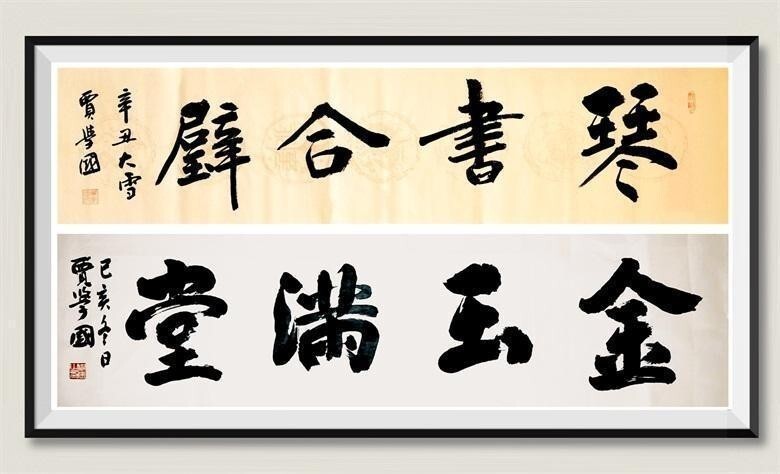 琴書合璧
辛丑大雪
賈學國
金玉满堂
己亥冬日
賈學國